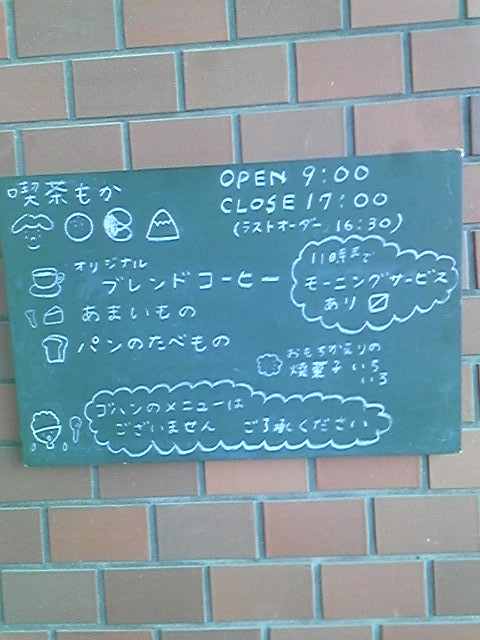 喫茶もか
OPEN 9:00
CLOSE 17:00
(ラストオーダー 16:30)
オリジナル
ブレンドコーヒー
あまいもの
パンのたべもの
11時まで
モーニングサービス
あり
おもちかえりの
焼菓子いろ
いろ
ゴハンのメニューは
ございません ご了承ください